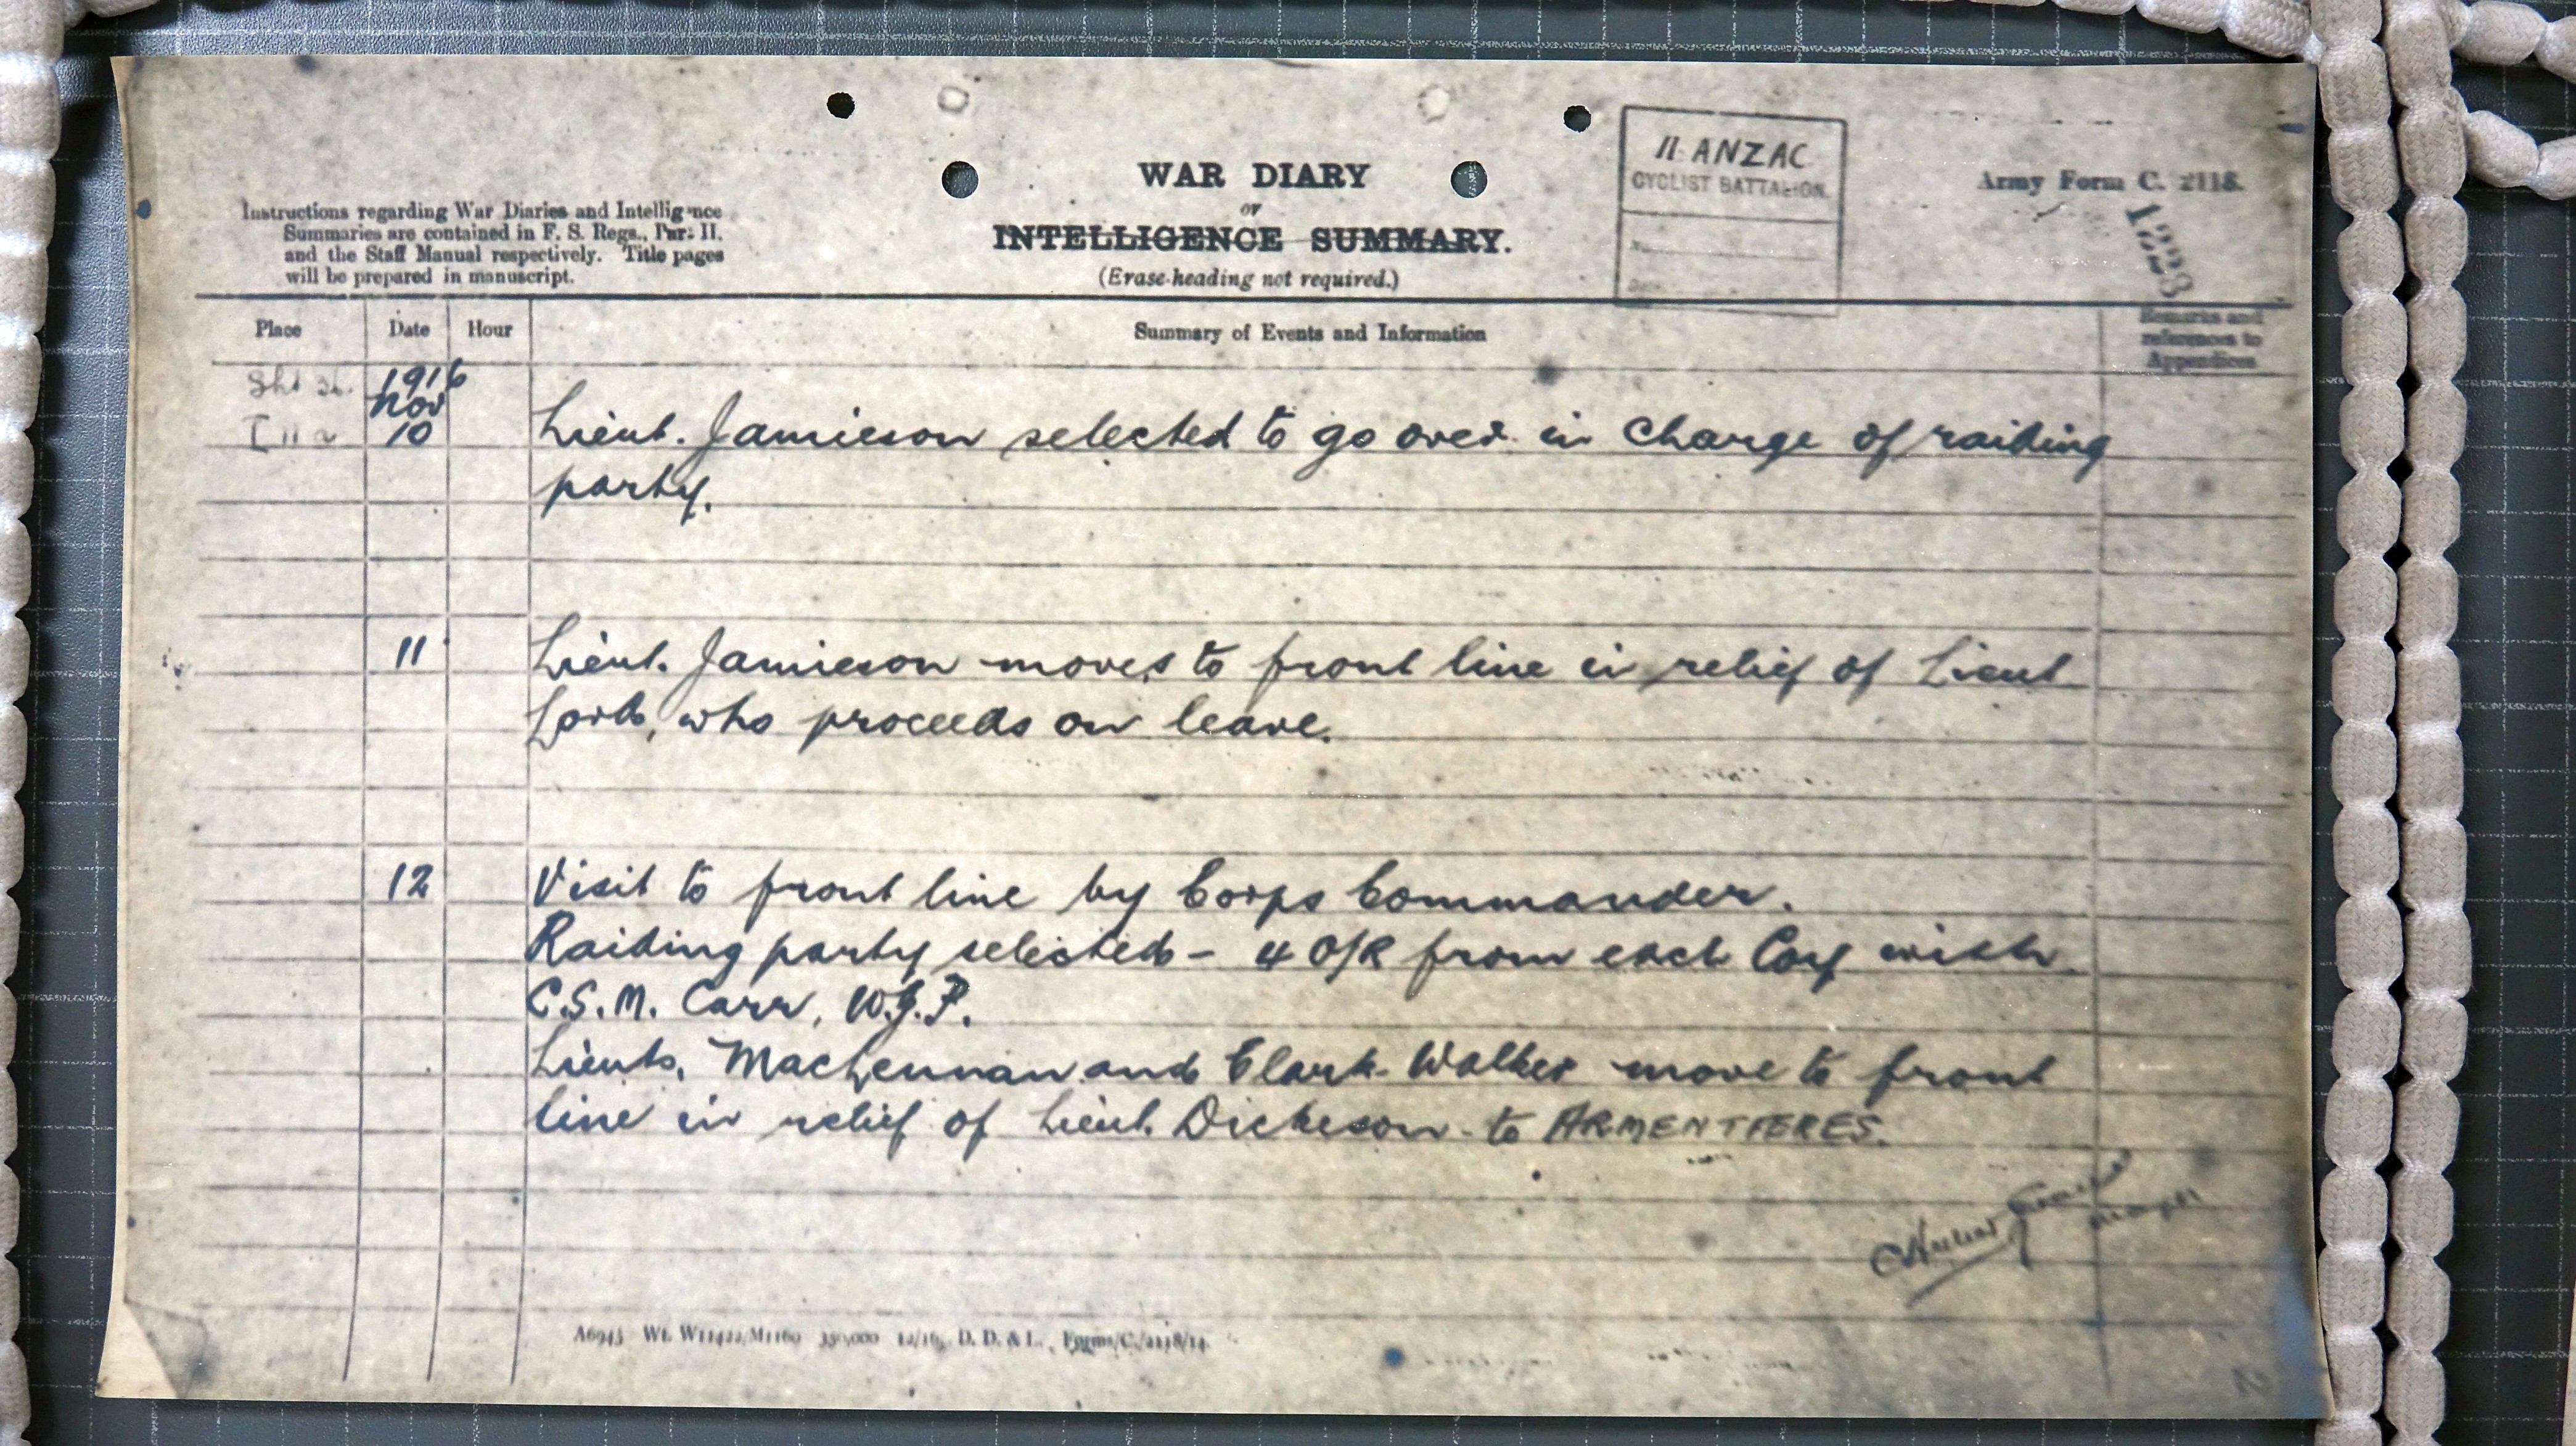 II ANZAC
CYCLIST BATTALION.
WAR DIARY
or
INTELLIGENCE SUMMARY.
(Erase heading not required.)
Army Form C. 2118.
1228
Instructions regarding War Diaries and Intelligence
Summaries are contained in F. S. Regs., Part II.
and the Staff Manual respectively. Title pages
will be prepared in manuscript.
Place Date Hour Summary of Events and Information Remarks and
references to
Appendices
Sht 36. 1916
Nov
10 Lieut. Jamieson selected to go over in charge of raiding
party.
11 Lieut. Jamieson moves to front line in relief of Lieut
who proceeds on leave.
12 Visit to front line by Corps Commander.
Raiding party selected - 4 O/R from each Coy with
C.S.M. Carr, W.J.P.
Lieuts, MacLennan and Clark-Walker move to front
line in relief of Lieut. Dickeson to ARMENTIERES.
Major
A6945 Wt. W11422/M1160 350,000 12/16 D. D. & L. Forms/C./2118/14.